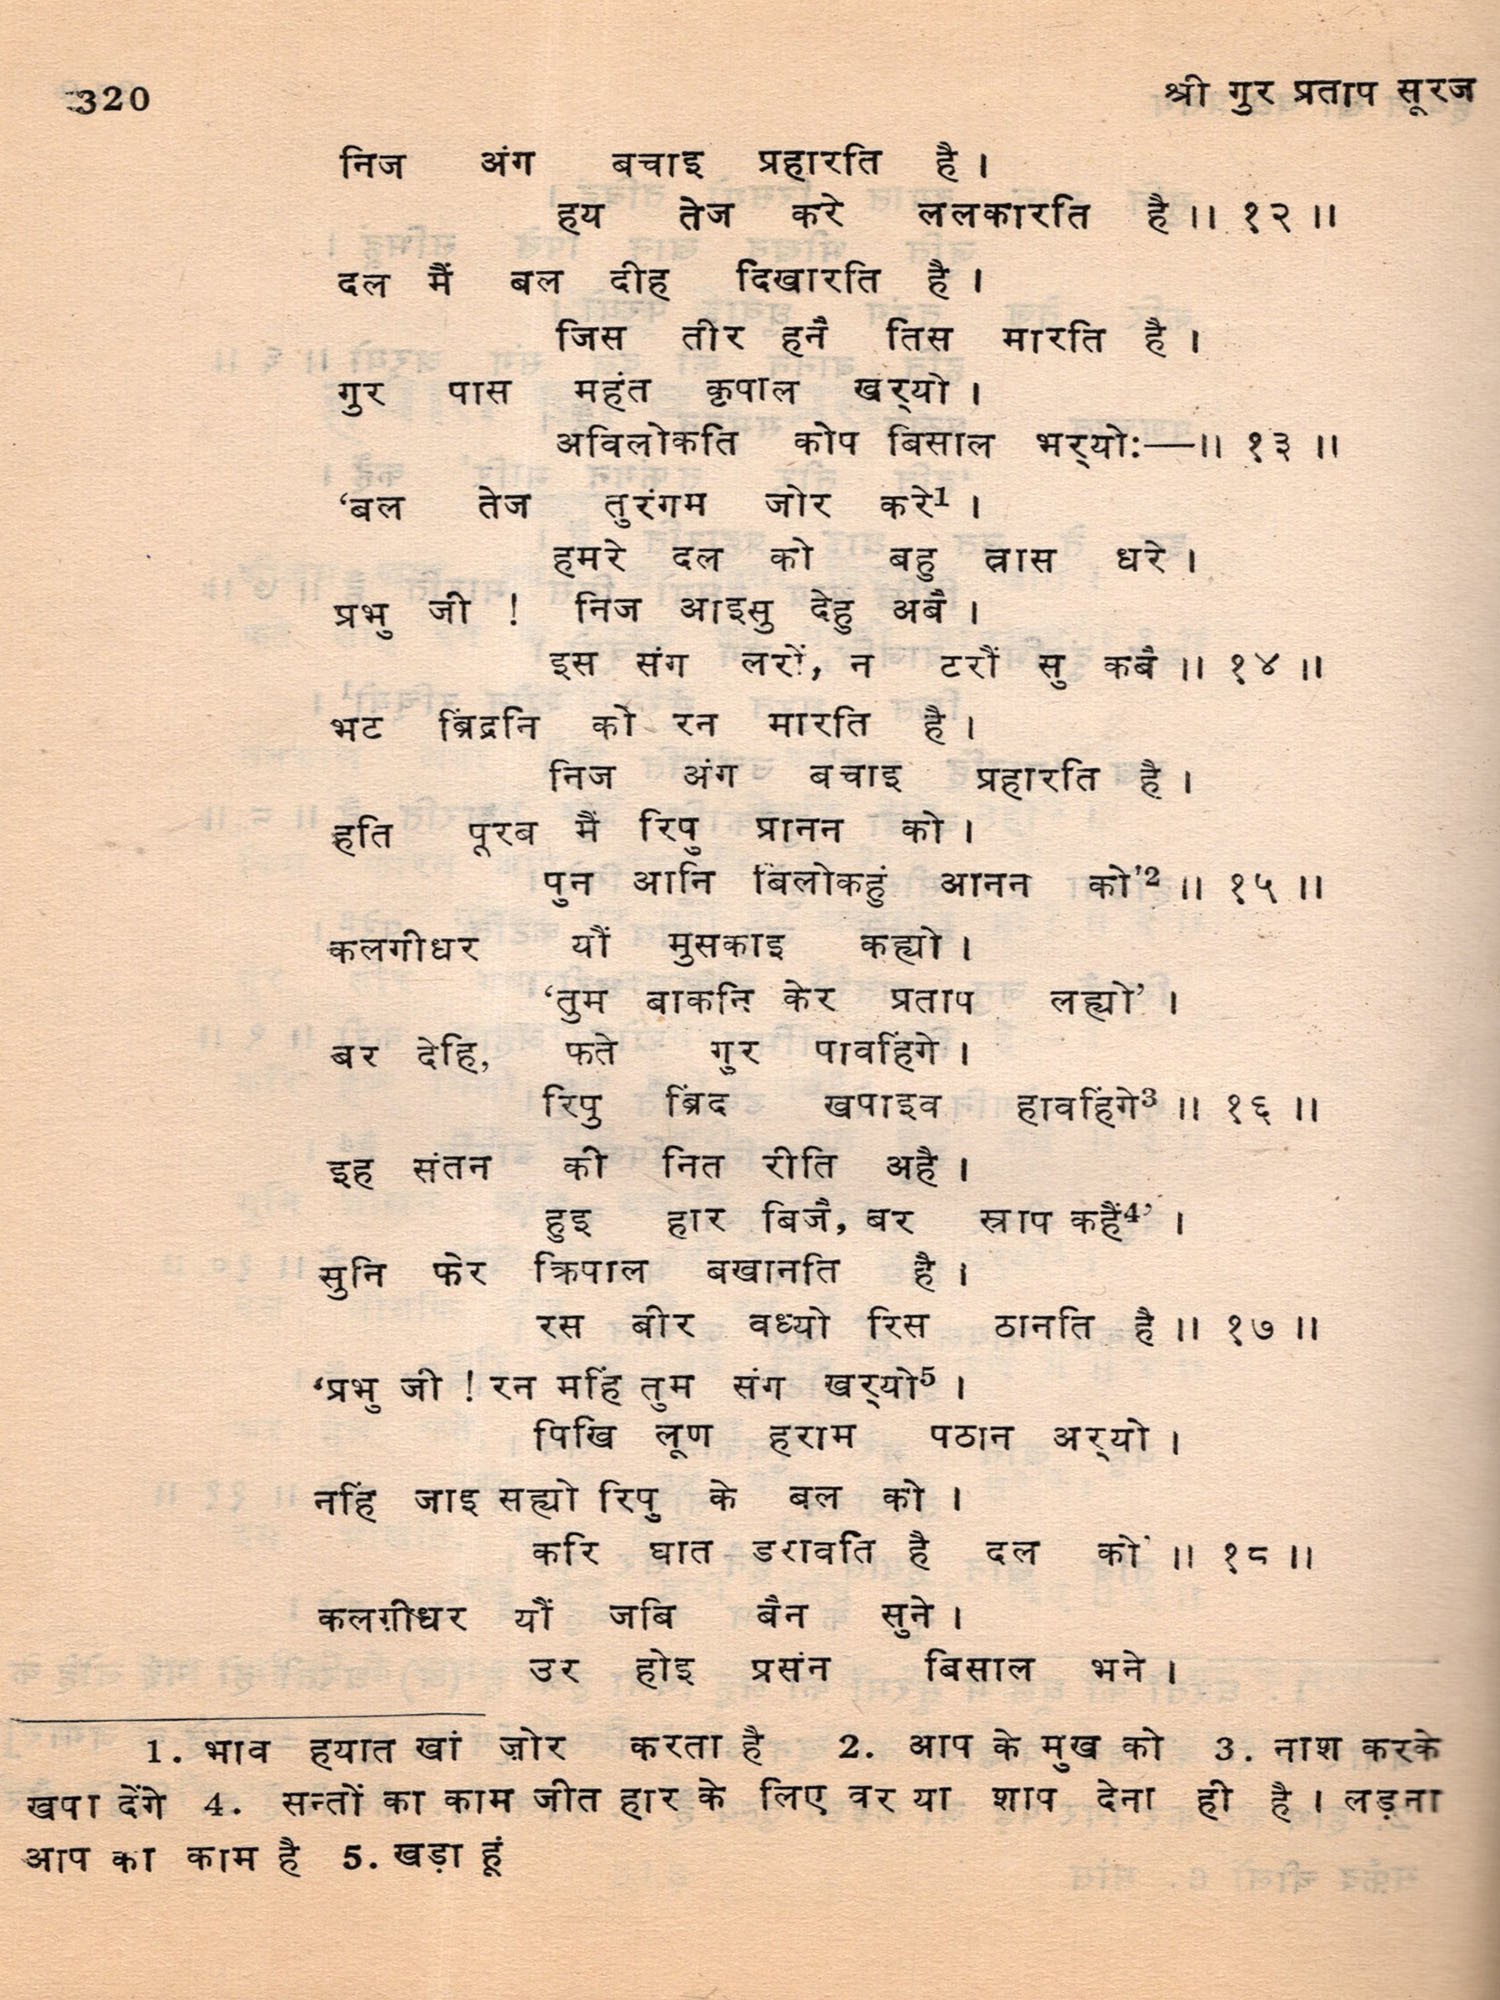 320 श्री गुर प्रताप सूरज
निज अंग बचाइ प्रहारति है ।
हय तेज करे ललकारति है ।। १२ ।।
दल मैं बल दीह दिखारति है ।
जिस तीर हनै तिस मारति है ।
गुर पास महंत कृपाल खर्‌यो ।
अविलोकति कोप बिसाल भर्‌योः—।। १३ ।।
‘बल तेज तुरंगम जोर करे¹ ।
हमरे दल को बहु त्रास धरे ।
प्रभु जी ! निज आइसु देहु अबै ।
इस संग लरों, न टरौं सु कबै ।। १४ ।।
भट ब्रिंद्रनि को रन मारति है ।
निज अंग बचाइ प्रहारति है ।
हति पूरब मैं रिपु प्रानन को ।
पुन आनि बिलोकहुं आनन को’² ।। १५ ।।
कलगीधर यौं मुसकाइ कह्यो ।
‘तुम बाकनि केर प्रताप लह्यो’ ।
बर देहि, फते गुर पावहिंगे ।
रिपु ब्रिंद खपाइव हावहिंगे³ ।। १६ ।।
इह संतन की नित रीति अहै ।
हुइ हार बिजै, बर स्राप कहैं⁴’ ।
सुनि फेर क्रिपाल बखानति है ।
रस बीर वध्यो रिस ठानति है ।। १७ ।।
‘प्रभु जी ! रन महिं तुम संग खर्‌यो⁵ ।
पिखि लूण हराम पठान अर्‌यो ।
नहिं जाइ सह्यो रिपु के बल को ।
करि घात डरावति है दल को’ ।। १८ ।।
कलग़ीधर यौं जबि बैन सुने ।
उर होइ प्रसंन बिसाल भने ।
1. भाव हयात खां ज़ोर करता है 2. आप के मुख को 3. नाश करके
खपा देंगे 4. सन्तों का काम जीत हार के लिए वर या शाप देना ही है । लड़ना
आप का काम है 5. खड़ा हूं